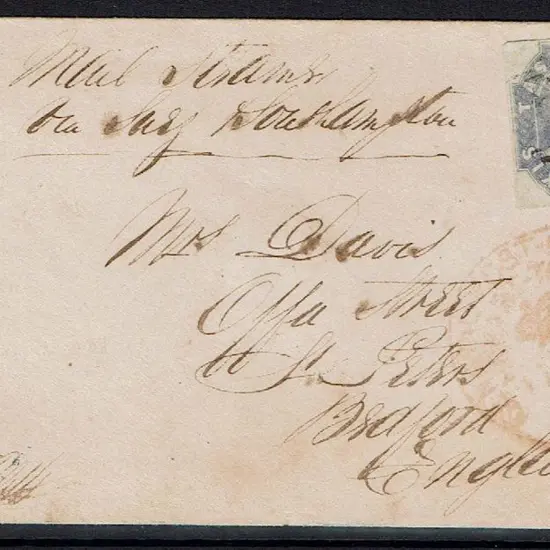 Mail Steamer
via Suez & Southampton
Mrs Davis
Offa Street
St Peters
Bedford
Engl